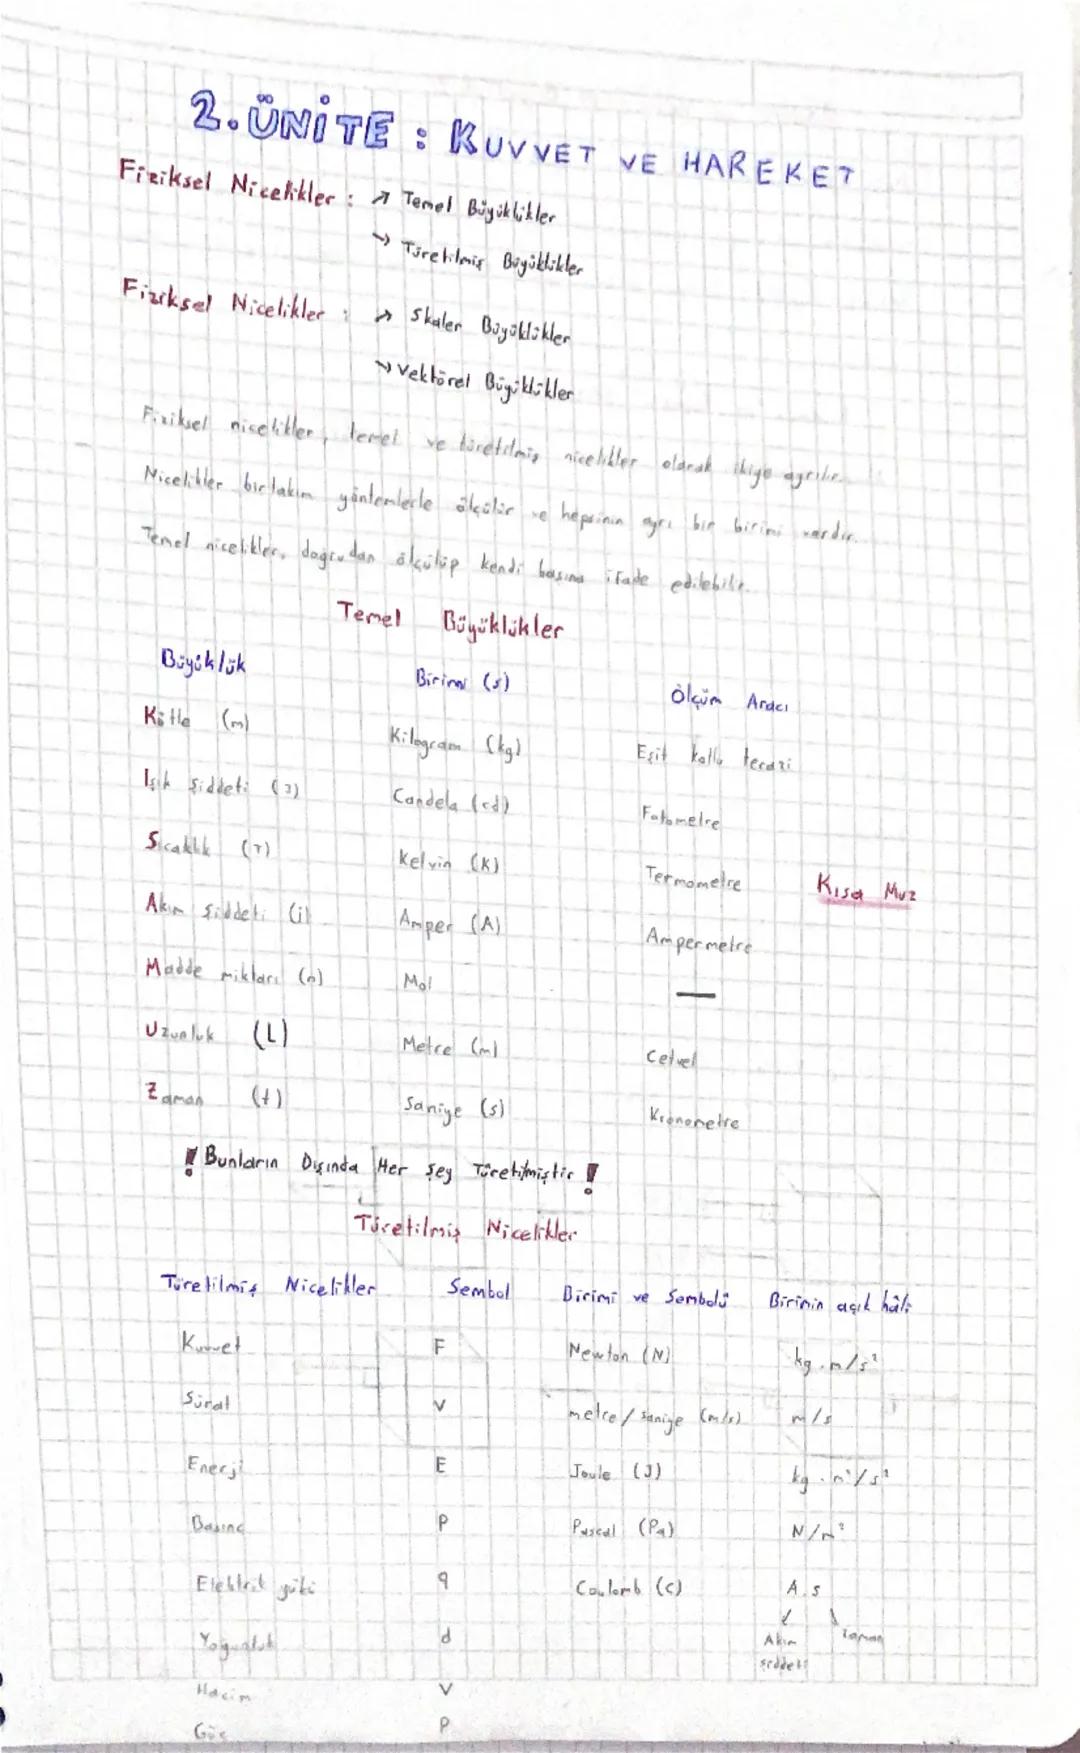 2. ÜNİTE : KUVVET VE HAREKET
Fiziksel Nicelikler : → Temel Büyüklükler
→ Türetilmiş Büyüklükler
Fiziksel Nicelikler : → Skaler Büyüklükler
→ Vektörel Büyüklükler
Fiziksel nicelikler, temel ve türetilmiş nicelikler olarak ikiye ayrılır.
Nicelikler birtakım yöntemlerle ölçülür ve hepsinin ayrı bir birimi vardır.
Temel nicelikler, doğrudan ölçülüp kendi başına ifade edilebilir.
Temel Büyüklükler
Büyüklük Birimi (s) Ölçüm Aracı
Kütle (m) Kilogram (kg) Eşit kollu terazi
Işık Şiddeti (J) Candela (cd) Fotometre
Sıcaklık (T) Kelvin (K) Termometre Kısa Muz
Akım Şiddeti (i) Amper (A) Ampermetre
Madde miktarı (n) Mol —
Uzunluk (L) Metre (m) Cetvel
Zaman (t) Saniye (s) Kronometre
! Bunların Dışında Her Şey Türetilmiştir !
Türetilmiş Nicelikler
Türetilmiş Nicelikler Sembol Birimi ve Sembolü Birimin açık hâli
Kuvvet F Newton (N) kg.m/s²
Sürat V metre/saniye (m/s) m/s
Enerji E Joule (J) kg.m²/s²
Basınç P Pascal (Pa) N/m²
Elektrik yükü q Coulomb (C) A.s
Yoğunluk d Akım şiddeti Zaman
Hacim V
Güç P